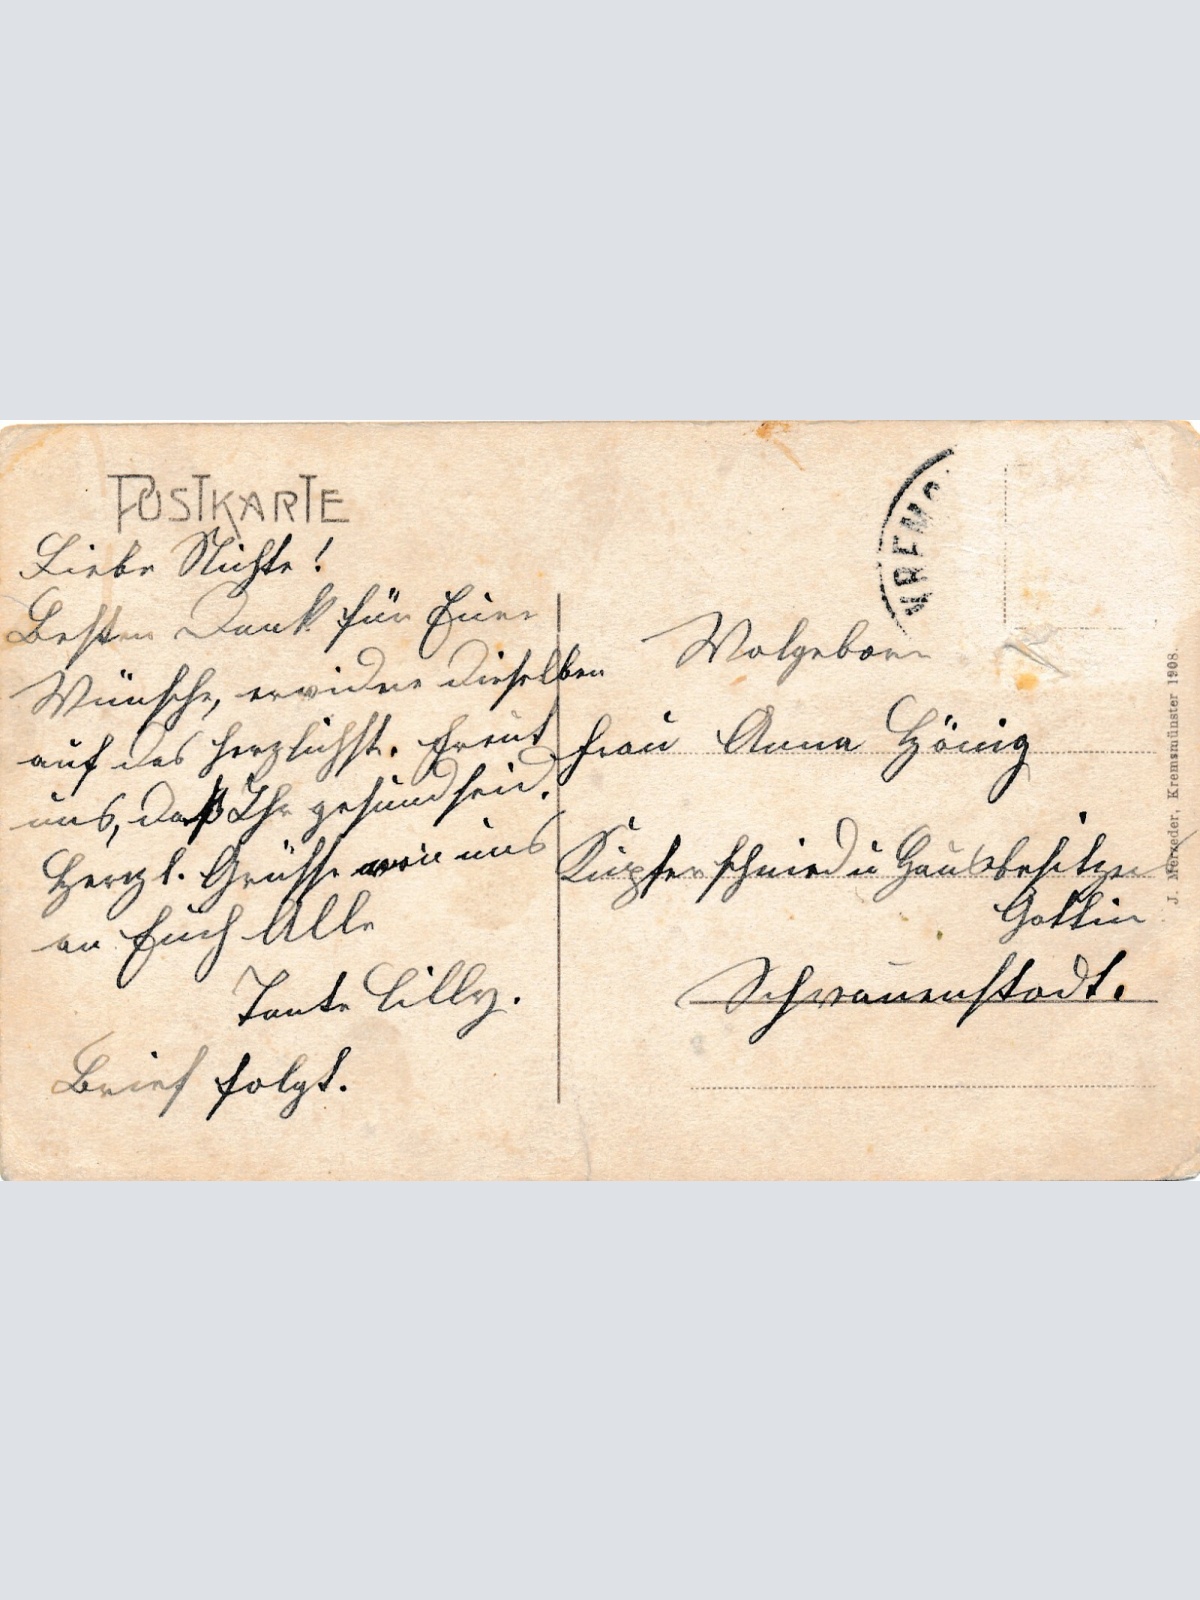 POSTKARTE
Liebe Nichte!
Besten Dank für Euere
Wünsche, erwidere dieselben
auf das herzlichst. Freut
uns, daß Ihr gesund seid.
Herzl. Grüsse von uns
an Euch Alle
Tante Cilly.
Brief folgt.
KREMS
Wolgeboren
Frau Anna Hönig
Kupferschmied u Hausbesitzer
Gattin
Schwanenstadt.
J. Merzeder, Kremsmünster 1908.